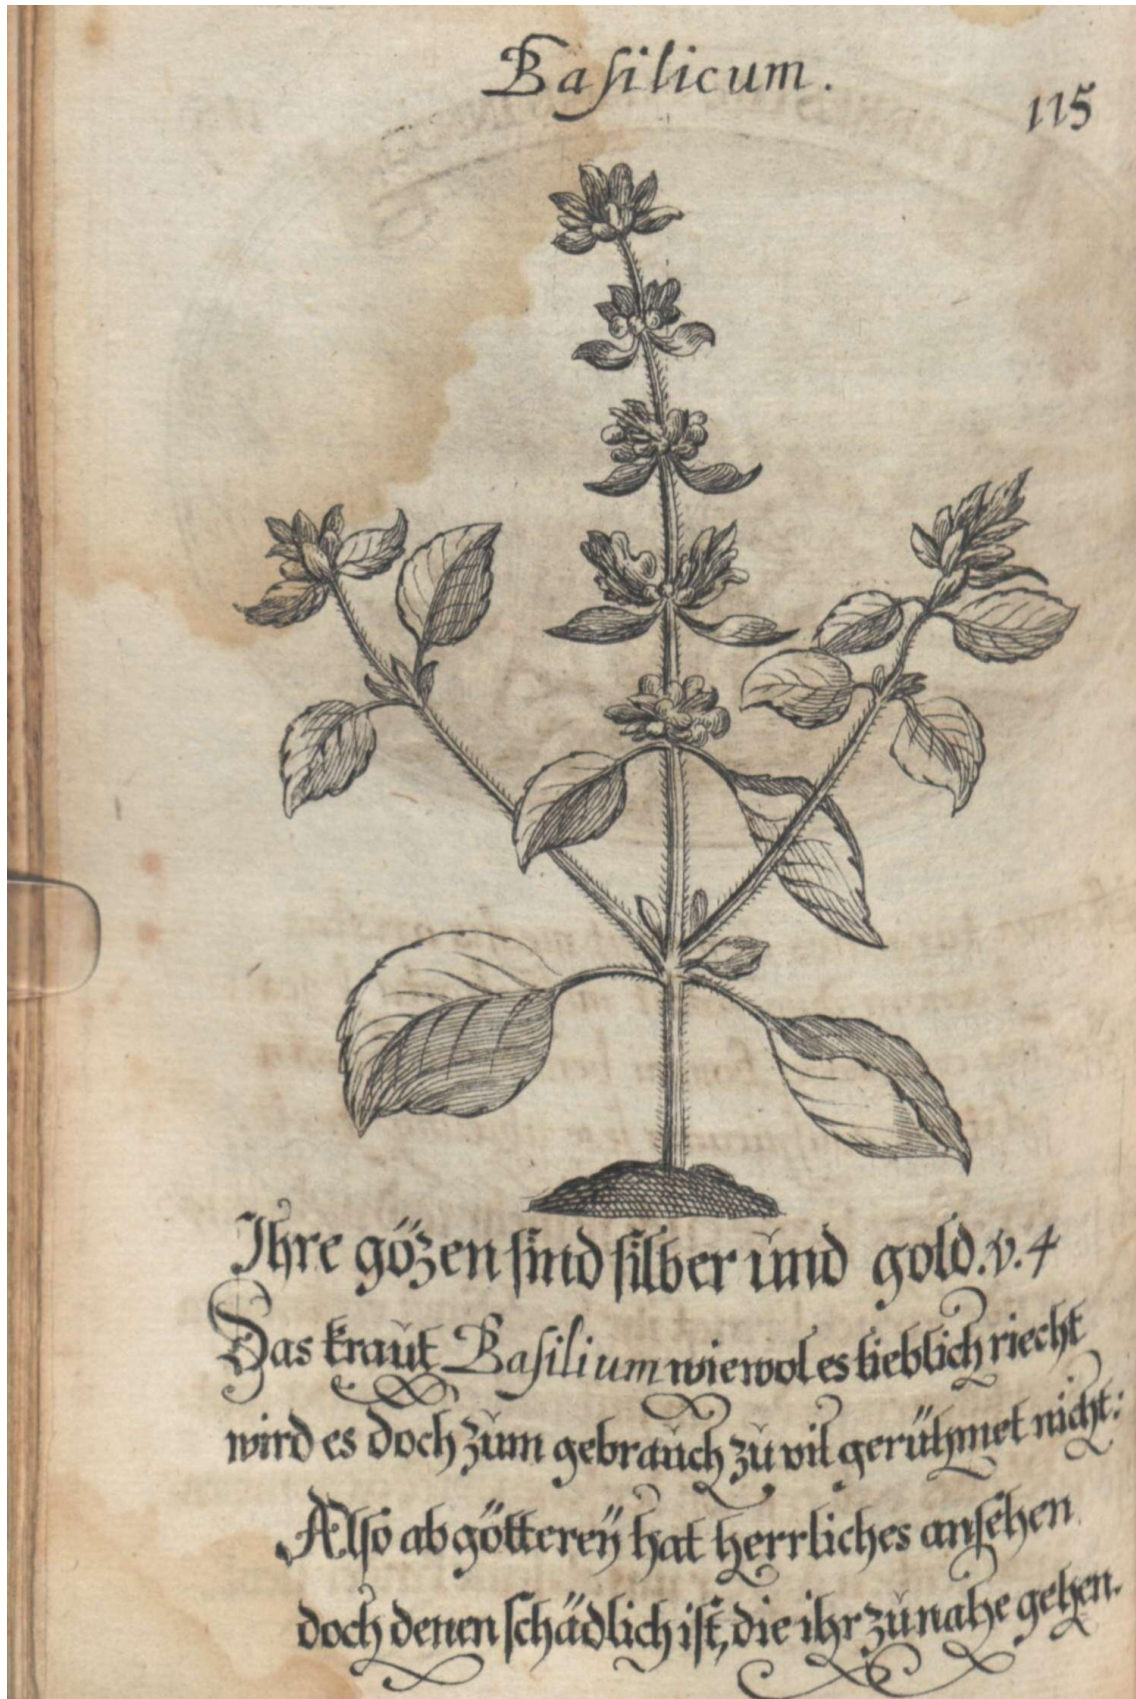 Basilicum.
115
Ihre gözen sind silber und gold. v. 4
Das kraut Basilium wiewol es lieblich riecht
wird es doch zum gebrauch zu vil gerühmet nicht:
Also abgötterey hat herrliches ansehen
doch denen schädlich ist, die ihr zu nahe gehen.